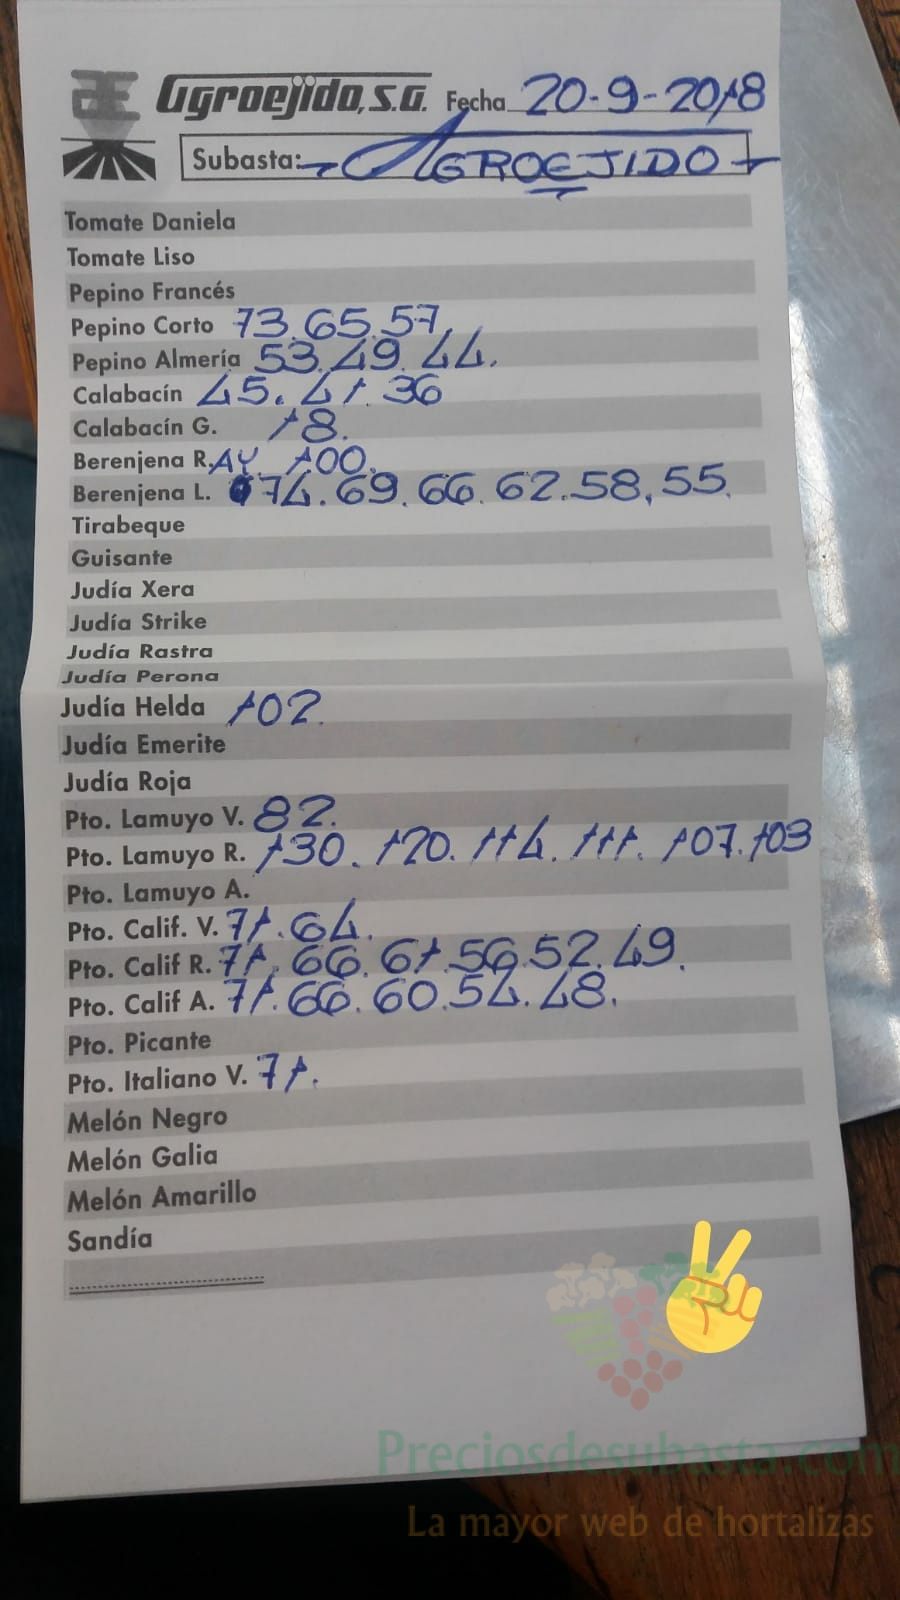 Agroejido, S.A. Fecha 20-9-2018
Subasta: AGROEJIDO
Tomate Daniela
Tomate Liso
Pepino Francés
Pepino Corto 73.65.57.
Pepino Almería 53.49.44.
Calabacín 45.41.36
Calabacín G. 18.
Berenjena R. AY. 100.
Berenjena L. 74.69.66.62.58.55.
Tirabeque
Guisante
Judía Xera
Judía Strike
Judía Rastra
Judía Perona
Judía Helda 102.
Judía Emerite
Judía Roja
Pto. Lamuyo V. 82.
Pto. Lamuyo R. 130.120.114.111.107.103
Pto. Lamuyo A.
Pto. Calif. V. 71.64.
Pto. Calif R. 71.66.61.56.52.49.
Pto. Calif A. 71.66.60.54.48.
Pto. Picante
Pto. Italiano V. 71.
Melón Negro
Melón Galia
Melón Amarillo
Sandía
Preciosdesubasta.com
La mayor web de hortalizas